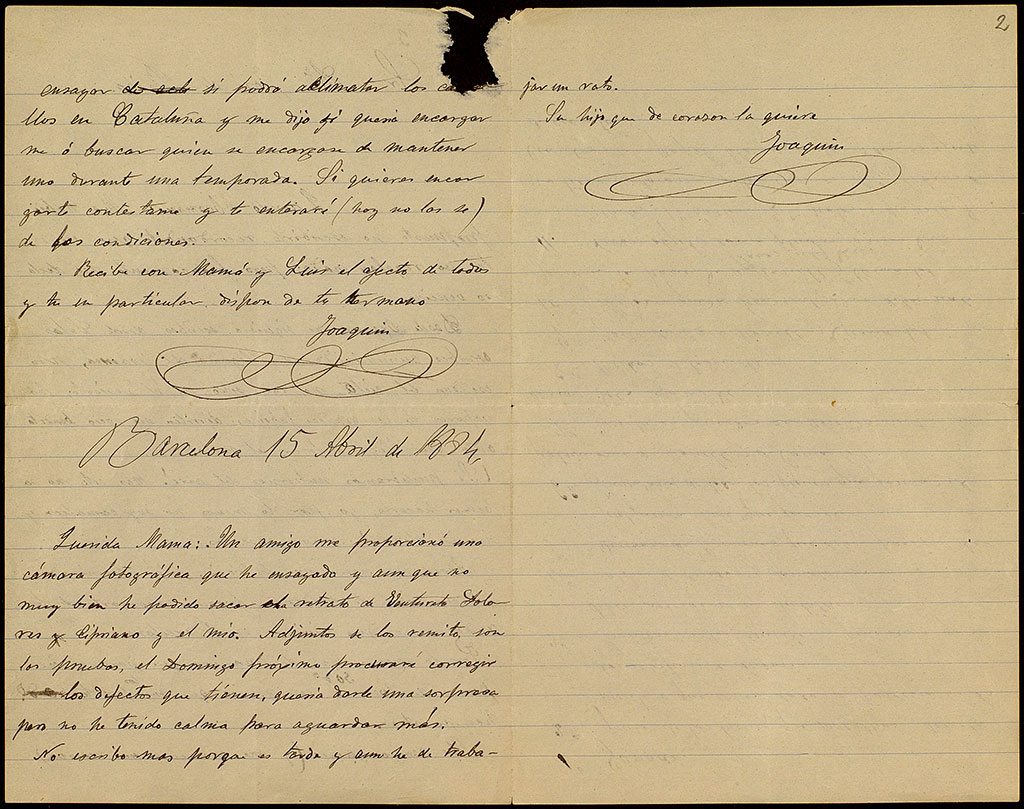 ensayar de acli si podrá aclimatar los ca
llos en Cataluña y me dijo si queria encargar
me ó buscar quien se encargase de mantener
uno durante una temporada. Si quieres encar
garte contestame y te enteraré (hoy no las se)
de las condiciones.
Recibe con Mamá y Luis el afecto de todos
y tu en particular, dispon de tu hermano
Joaquin
Barcelona 15 Abril de 1884,
Querida Mama: Un amigo me proporcionó una
cámara fotográfica que he ensayado y aun que no
muy bien he podido sacar el retrato de Venturita Dolo
res y Cipriano y el mio. Adjuntos se los remito, son
las pruebas, el Domingo próximo procuraré corregir
los defectos que tienen, queria darle una sorpresa
pero no he tenido calma para aguardar más.
No escribo mas porque es tarde y aun he de traba-
2
jar un rato.
Su hijo que de corazon la quiere
Joaquin